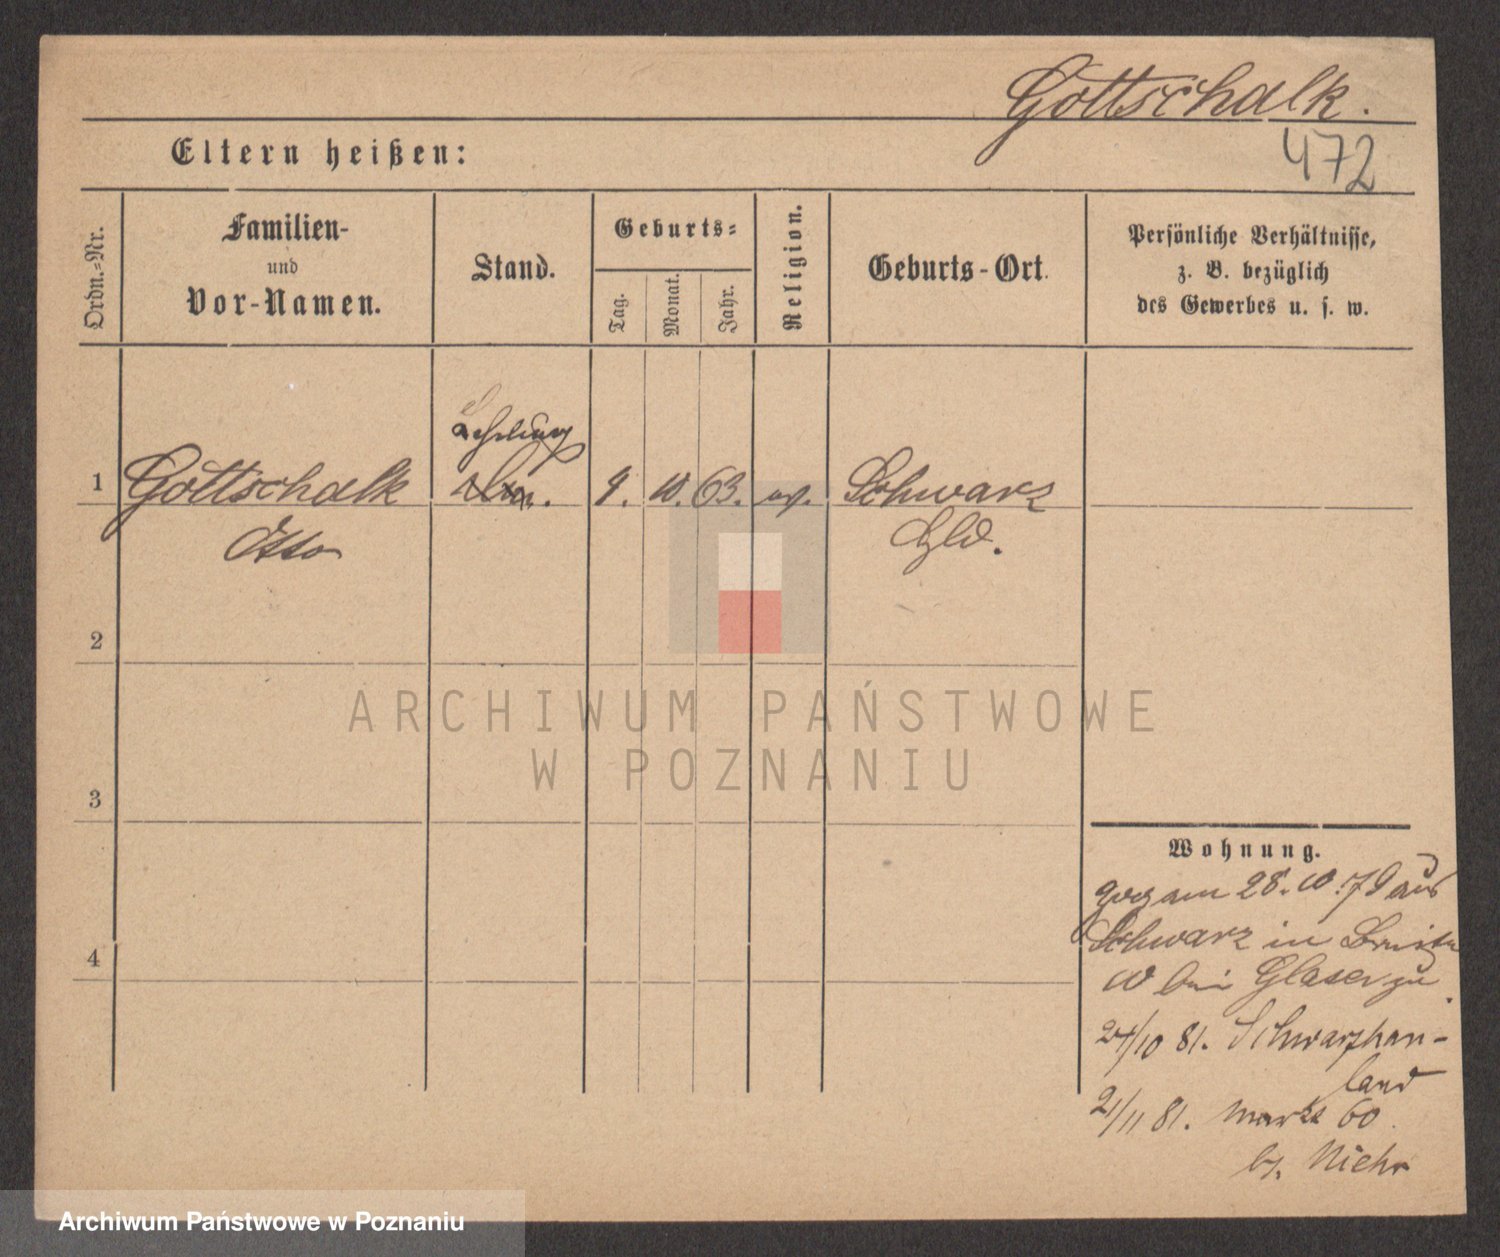 Gottschalk.
472
Eltern heißen:
Ordn.-Nr.
Familien-
und
Vor-Namen.
Stand.
Geburts-
Tag.
Monat.
Jahr.
Religion.
Geburts-Ort.
Persönliche Verhältnisse,
z. B. bezüglich
des Gewerbes u. s. w.
Lehrling
1 Gottschalk 9. 10. 63. ev. Schwarz
Otto
2
3
4
ARCHIWUM PAŃSTWOWE
W POZNANIU
Wohnung.
zog am 28. 10. 79 aus
Schwarz in
10 bei Glaser zu.
24/10 81. Schwarzhau-
land
21/11 81. Markt 60.
b. Niehr
Archiwum Państwowe w Poznaniu